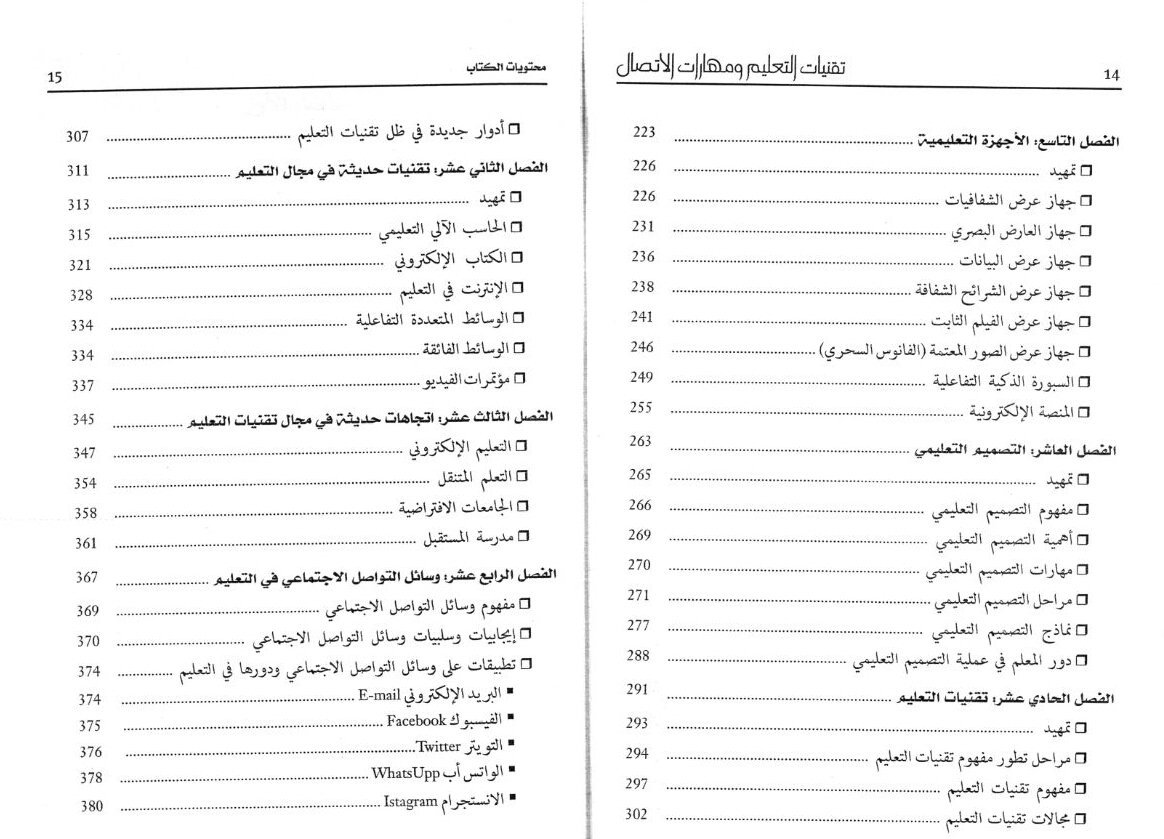 14
تقنيات التعليم ومهارات الاتصال
الفصل التاسع: الأجهزة التعليمية ........ 223
❐ تمهيد ........ 226
❐ جهاز عرض الشفافيات ........ 226
❐ جهاز العارض البصري ........ 231
❐ جهاز عرض البيانات ........ 236
❐ جهاز عرض الشرائح الشفافة ........ 238
❐ جهاز عرض الفيلم الثابت ........ 241
❐ جهاز عرض الصور المعتمة (الفانوس السحري) ........ 246
❐ السبورة الذكية التفاعلية ........ 249
❐ المنصة الإلكترونية ........ 255
الفصل العاشر: التصميم التعليمي ........ 263
❐ تمهيد ........ 265
❐ مفهوم التصميم التعليمي ........ 266
❐ أهمية التصميم التعليمي ........ 269
❐ مهارات التصميم التعليمي ........ 270
❐ مراحل التصميم التعليمي ........ 271
❐ نماذج التصميم التعليمي ........ 277
❐ دور المعلم في عملية التصميم التعليمي ........ 288
الفصل الحادي عشر: تقنيات التعليم ........ 291
❐ تمهيد ........ 293
❐ مراحل تطور مفهوم تقنيات التعليم ........ 294
❐ مفهوم تقنيات التعليم ........ 297
❐ مجالات تقنيات التعليم ........ 302
محتويات الكتاب
15
❐ أدوار جديدة في ظل تقنيات التعليم ........ 307
الفصل الثاني عشر: تقنيات حديثة في مجال التعليم ........ 311
❐ تمهيد ........ 313
❐ الحاسب الآلي التعليمي ........ 315
❐ الكتاب الإلكتروني ........ 321
❐ الإنترنت في التعليم ........ 328
❐ الوسائط المتعددة التفاعلية ........ 334
❐ الوسائط الفائقة ........ 334
❐ مؤتمرات الفيديو ........ 337
الفصل الثالث عشر: اتجاهات حديثة في مجال تقنيات التعليم ........ 345
❐ التعليم الإلكتروني ........ 347
❐ التعلم المتنقل ........ 354
❐ الجامعات الافتراضية ........ 358
❐ مدرسة المستقبل ........ 361
الفصل الرابع عشر: وسائل التواصل الاجتماعي في التعليم ........ 367
❐ مفهوم وسائل التواصل الاجتماعي ........ 369
❐ إيجابيات وسلبيات وسائل التواصل الاجتماعي ........ 370
❐ تطبيقات على وسائل التواصل الاجتماعي ودورها في التعليم ........ 374
▪ البريد الإلكتروني E-mail ........ 374
▪ الفيسبوك Facebook ........ 375
▪ التويتر Twitter ........ 376
▪ الواتس أب WhatsUpp ........ 378
▪ الانستجرام Istagram ........ 380